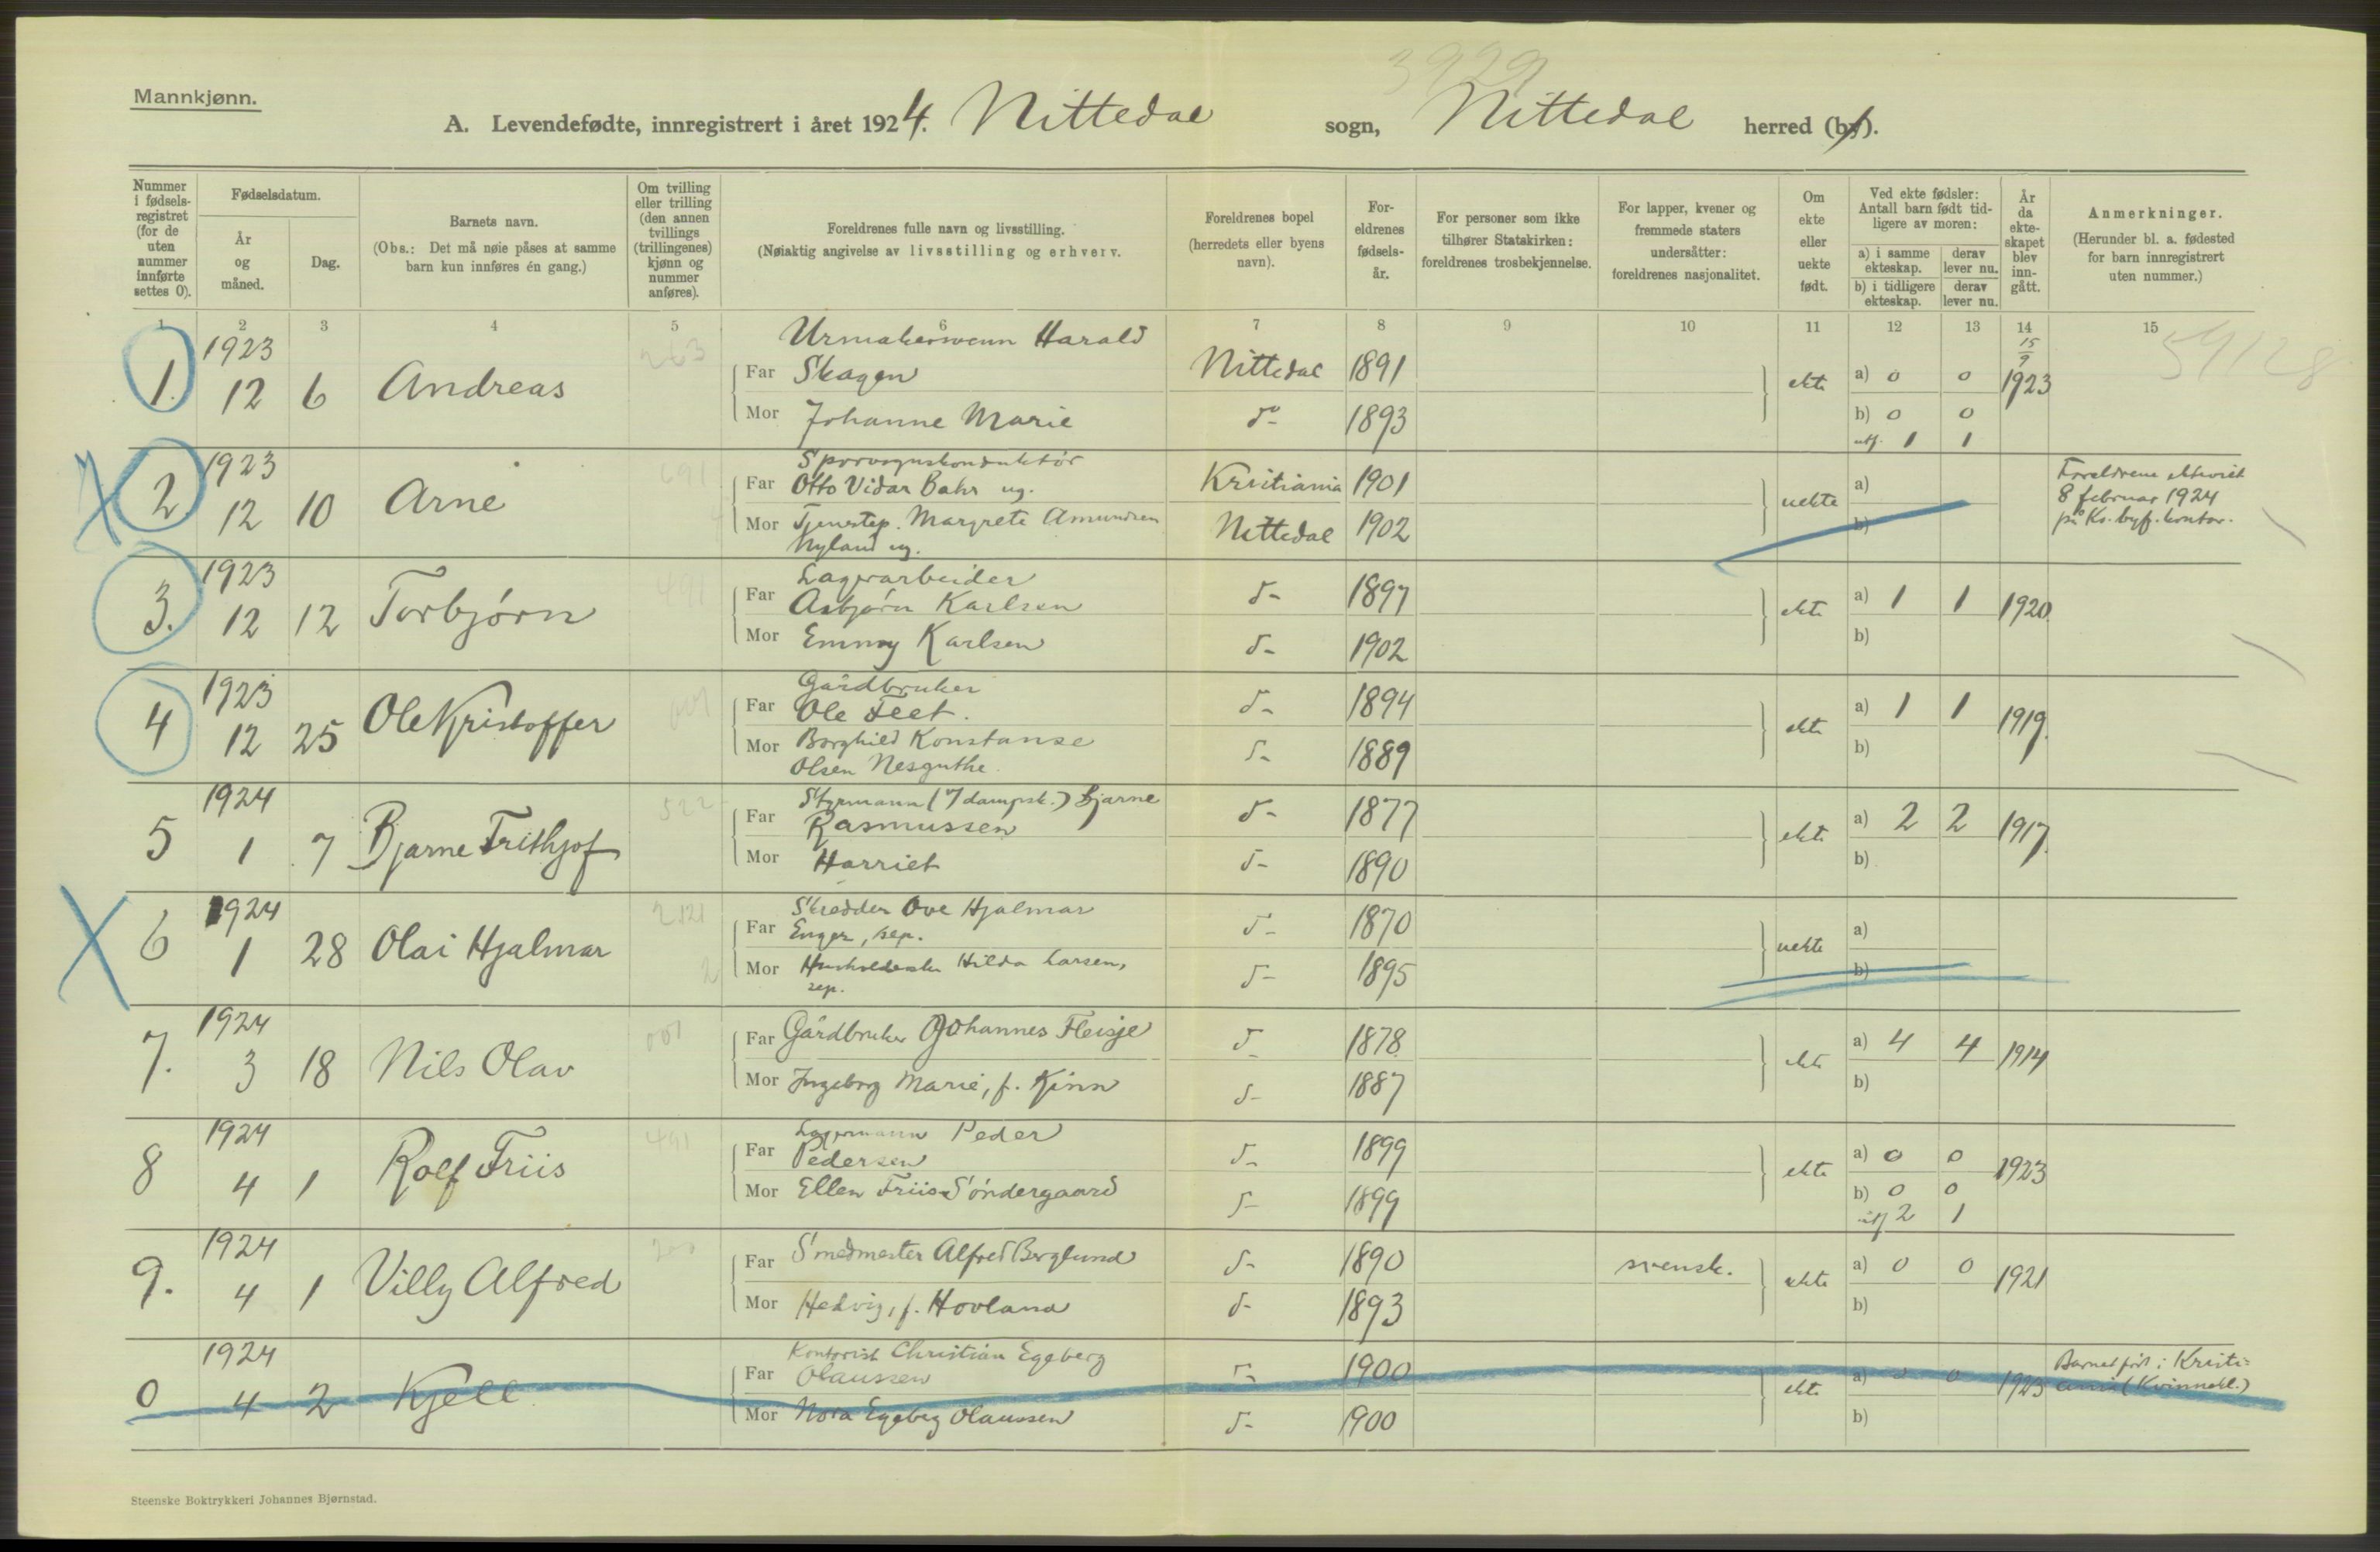 3929
Mannkjønn.
A. Levendefødte, innregistrert i året 1924. Nittedal sogn, Nittedal herred (by).
Nummer i fødsels-registret (for de uten nummer innførte settes 0).
Fødselsdatum.
År og måned.
Dag.
Barnets navn.
(Obs.: Det må nøie påses at samme barn kun innføres én gang.)
Om tvilling eller trilling (den annen tvillings (trillingenes) kjønn og nummer anføres).
Foreldrenes fulle navn og livsstilling.
(Nøiaktig angivelse av livsstilling og erhverv.
Foreldrenes bopel (herredets eller byens navn).
For-eldrenes fødsels-år.
For personer som ikke tilhører Statskirken: foreldrenes trosbekjennelse.
For lapper, kvener og fremmede staters undersåtter: foreldrenes nasjonalitet.
Om ekte eller uekte født.
Ved ekte fødsler: Antall barn født tid-ligere av moren:
a) i samme ekteskap. derav lever nu.
b) i tidligere ekteskap. derav lever nu.
År da ekte-skapet blev inn-gått.
Anmerkninger.
(Herunder bl. a. fødested for barn innregistrert uten nummer.)
1 2 3 4 5 6 7 8 9 10 11 12 13 14 15
59128
1. 1923 12 6 Andreas 263
Urmakersvenn Harald
Far Skagen Nittedal 1891 ekte a) 0 0 15/9 1923
Mor Johanne Marie do- 1893 b) 0 0
utf. 1 1
2 1923 12 10 Arne 691
Sporvognskonduktør
Far Otto Vidar Bahr ug. Kristiania 1901 uekte a)
Mor Tjenestep. Margrete Amundsen Nittedal 1902 b)
Nyland ug.
Foreldrene ekteviet
8 februar 1924
på Kr. byf. kontor.
3. 1923 12 12 Torbjørn 491
Lagerarbeider
Far Asbjørn Karlsen do- 1897 ekte a) 1 1 1920.
Mor Emmy Karlsen do- 1902 b)
4 1923 12 25 Ole Kristoffer 001
Gårdbruker
Far Ole Feet. do- 1894 ekte a) 1 1 1919.
Mor Borghild Konstanse do- 1889 b)
Olsen Nesguthe.
5 1924 1 7 Bjarne Frithjof 522
Styrmann (I dampsk.) Bjarne
Far Rasmussen do- 1877 ekte a) 2 2 1917.
Mor Harriet do- 1890 b)
6 1924 1 28 Olai Hjalmar
Skredder Ove Hjalmar
Far Enger, sep. do- 1870 uekte a)
Mor Husholderske Hilda Larsen, do- 1895 b)
sep.
7. 1924 3 18 Nils Olav 001
Far Gårdbruker Johannes Fleisje do- 1878 ekte a) 4 4 1914
Mor Ingeborg Marie, f. Kinn do- 1887 b)
8 1924 4 1 Rolf Friis 491
Lagermann Peder
Far Pedersen do- 1899 ekte a) 0 0 1923
Mor Ellen Friis Søndergaard do- 1899 b) 0 0
utf 2 1
9. 1924 4 1 Villy Alfred
Far Smedmester Alfred Berglund do- 1890 svensk. ekte a) 0 0 1921
Mor Hedvig, f. Hovland do- 1893 b)
0 1924 4 2 Kjell
Kontorist Christian Egeberg
Far Olaussen do- 1900 ekte a) 0 0 1923
Mor Nora Egeberg Olaussen do- 1900 b)
Barnet født i Kristi=
ania (Kvinnekl.)
Steenske Boktrykkeri Johannes Bjørnstad.